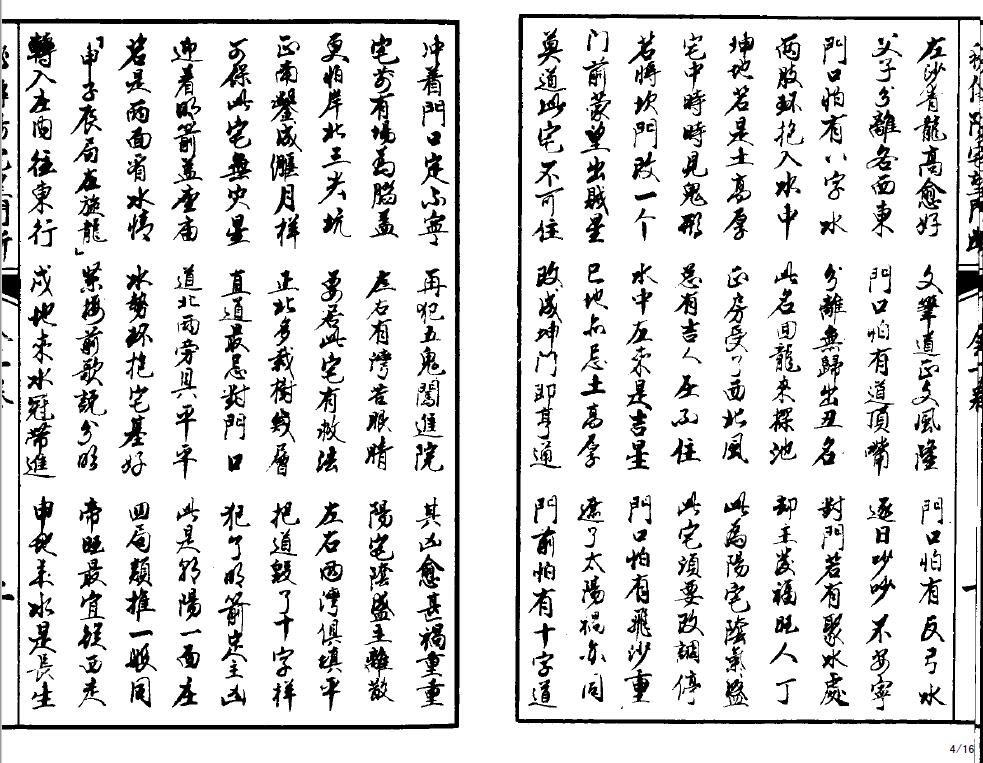 左沙青龍高愈好 文筆道正文風隆 門口怕有反弓水
父子分離各西東 門口怕有道頂嘴 逐日吵吵不安寧
門口怕有八字水 分離無歸出丑名 對門若有聚水處
兩股环抱入水中 此名回龍來探池 却主發福旺人丁
坤地若是土高厚 正房受了西北風 此為陽宅陰氣盛
宅中時時見鬼形 总有吉人居不住 此宅須要改調停
若將坎門改一个 水中左來是吉星 門口怕有飛沙重
门前蒙望出賊星 巳地亦忌土高厚 遮了太陽禍亦同
莫道此宅不可住 改成坤門即亨通 門前怕有十字道
冲着門口定不寧 再犯五鬼闖進院 其凶愈甚禍重重
宅前有塲為腦蓋 左右有灣苦眼睛 陽宅陰盛主離散
更怕岸北三尖坑 要若此宅有救法 左右兩灣俱填平
正南鑿成偃月樣 正北多栽樹幾層 把道毀了十字樣
可保此宅無灾星 直道最忌對門口 犯了明箭定主凶
迎着明箭蓋座庙 道北兩旁具平平 此是陽一面左
若是兩面有水情 水勢环抱宅基好 四局類推一般同
「申子辰局左旋龍」 紧接前歌説分明 帝旺最宜西走
轉入左酉往東行 戌地来水冠帶進 申地来水是長生
4/16